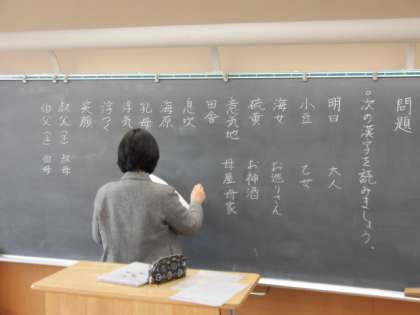 問題
○次の漢字を読みましょう。
明日 大人
小豆 乙女
海女 お巡りさん
硫黄 お神酒
意気地 母屋母家
田舎
息吹
海原
乳母
浮気
浮つく
笑顔
叔父 叔母
伯父 伯母